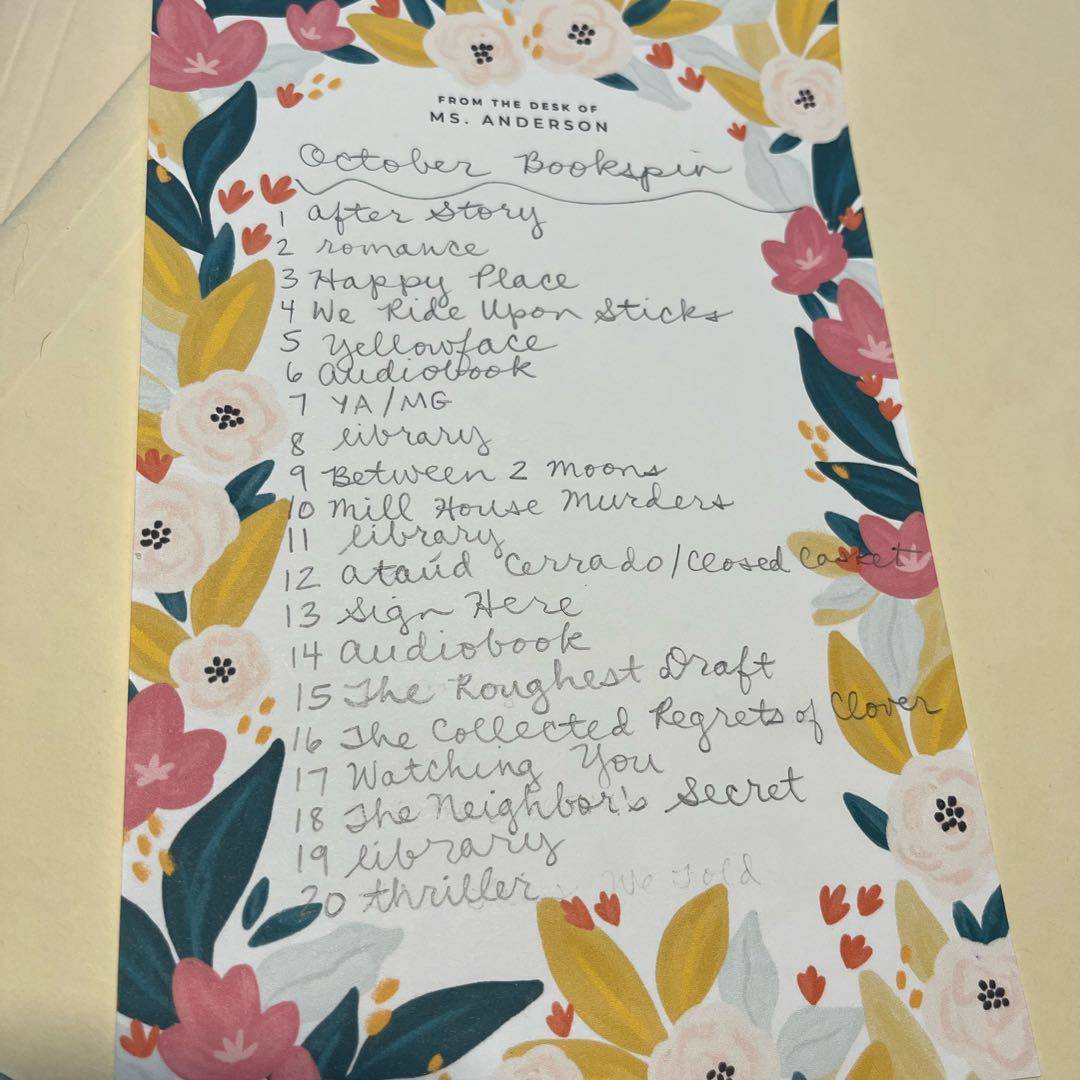 FROM THE DESK OF
MS. ANDERSON
October Bookspin
1 After Story
2 romance
3 Happy Place
4 We Ride Upon Sticks
5 Yellowface
6 audiobook
7 YA/MG
8 library
9 Between 2 Moons
10 Mill House Murders
11 library
12 Ataúd Cerrado/Closed Casket
13 Sign Here
14 audiobook
15 The Roughest Draft
16 The Collected Regrets of Clover
17 Watching You
18 The Neighbor's Secret
19 library
20 thriller We Told